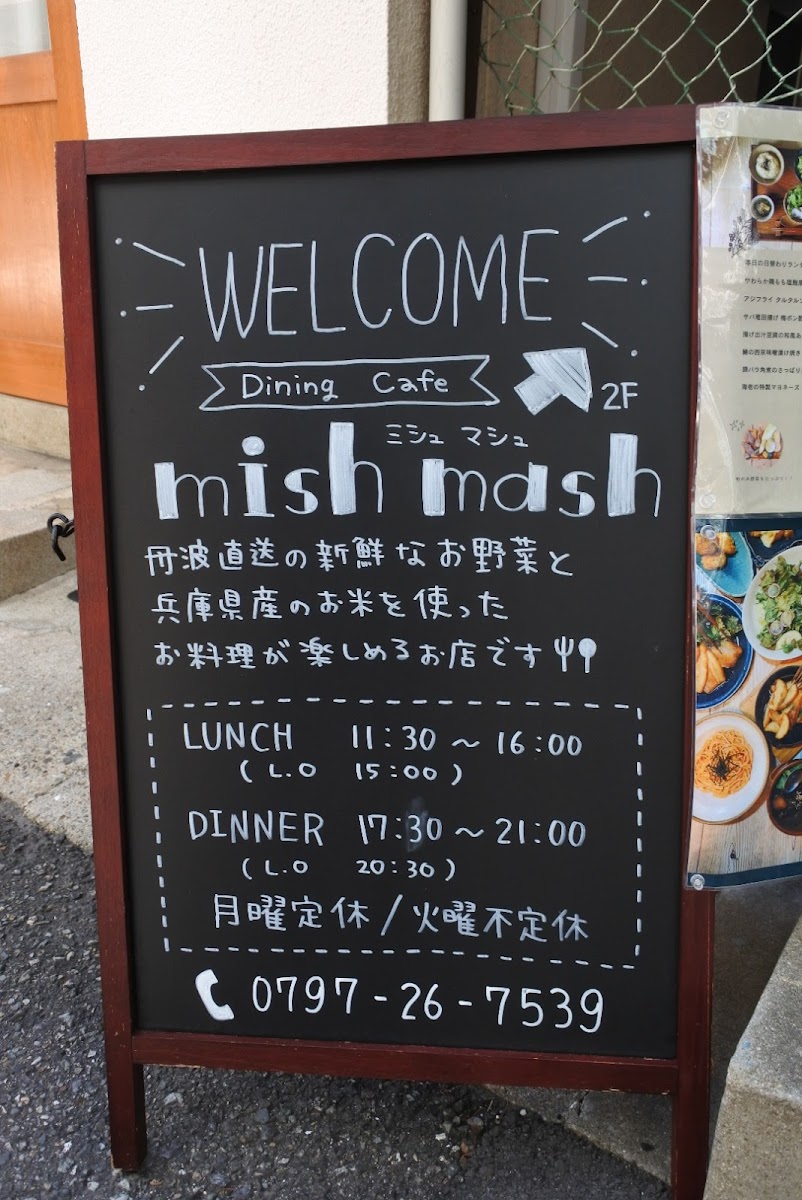 WELCOME
Dining Cafe
2F
ミシュ マシュ
mish mash
丹波直送の新鮮なお野菜と
兵庫県産のお米を使った
お料理が楽しめるお店です
LUNCH 11:30～16:00
(L.O 15:00)
DINNER 17:30～21:00
(L.O 20:30)
月曜定休/火曜不定休
0797-26-7539
本日の日替わりラン
やわらか鶏もも塩麹
アジフライ タルタル
サバ竜田揚げ 梅ポン
揚げ出汁豆腐の和風あ
鰆の西京味噌漬け焼き
豚バラ角煮のさっぱり
海老の特製マヨネーズ